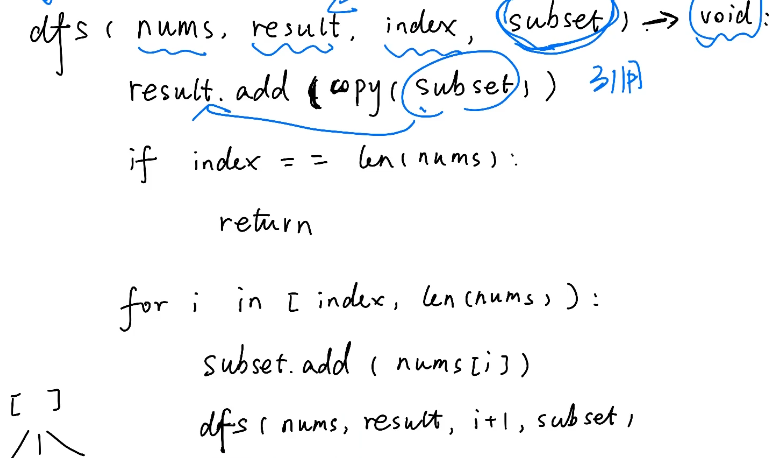 dfs ( nums, result, index, subset ) → void :
result. add ( copy ( subset ) ) 引用
if index = = len ( nums ) :
return
for i in [ index, len (nums ) ) :
subset. add ( nums [i] )
dfs ( nums, result, i+1, subset )
[ ]